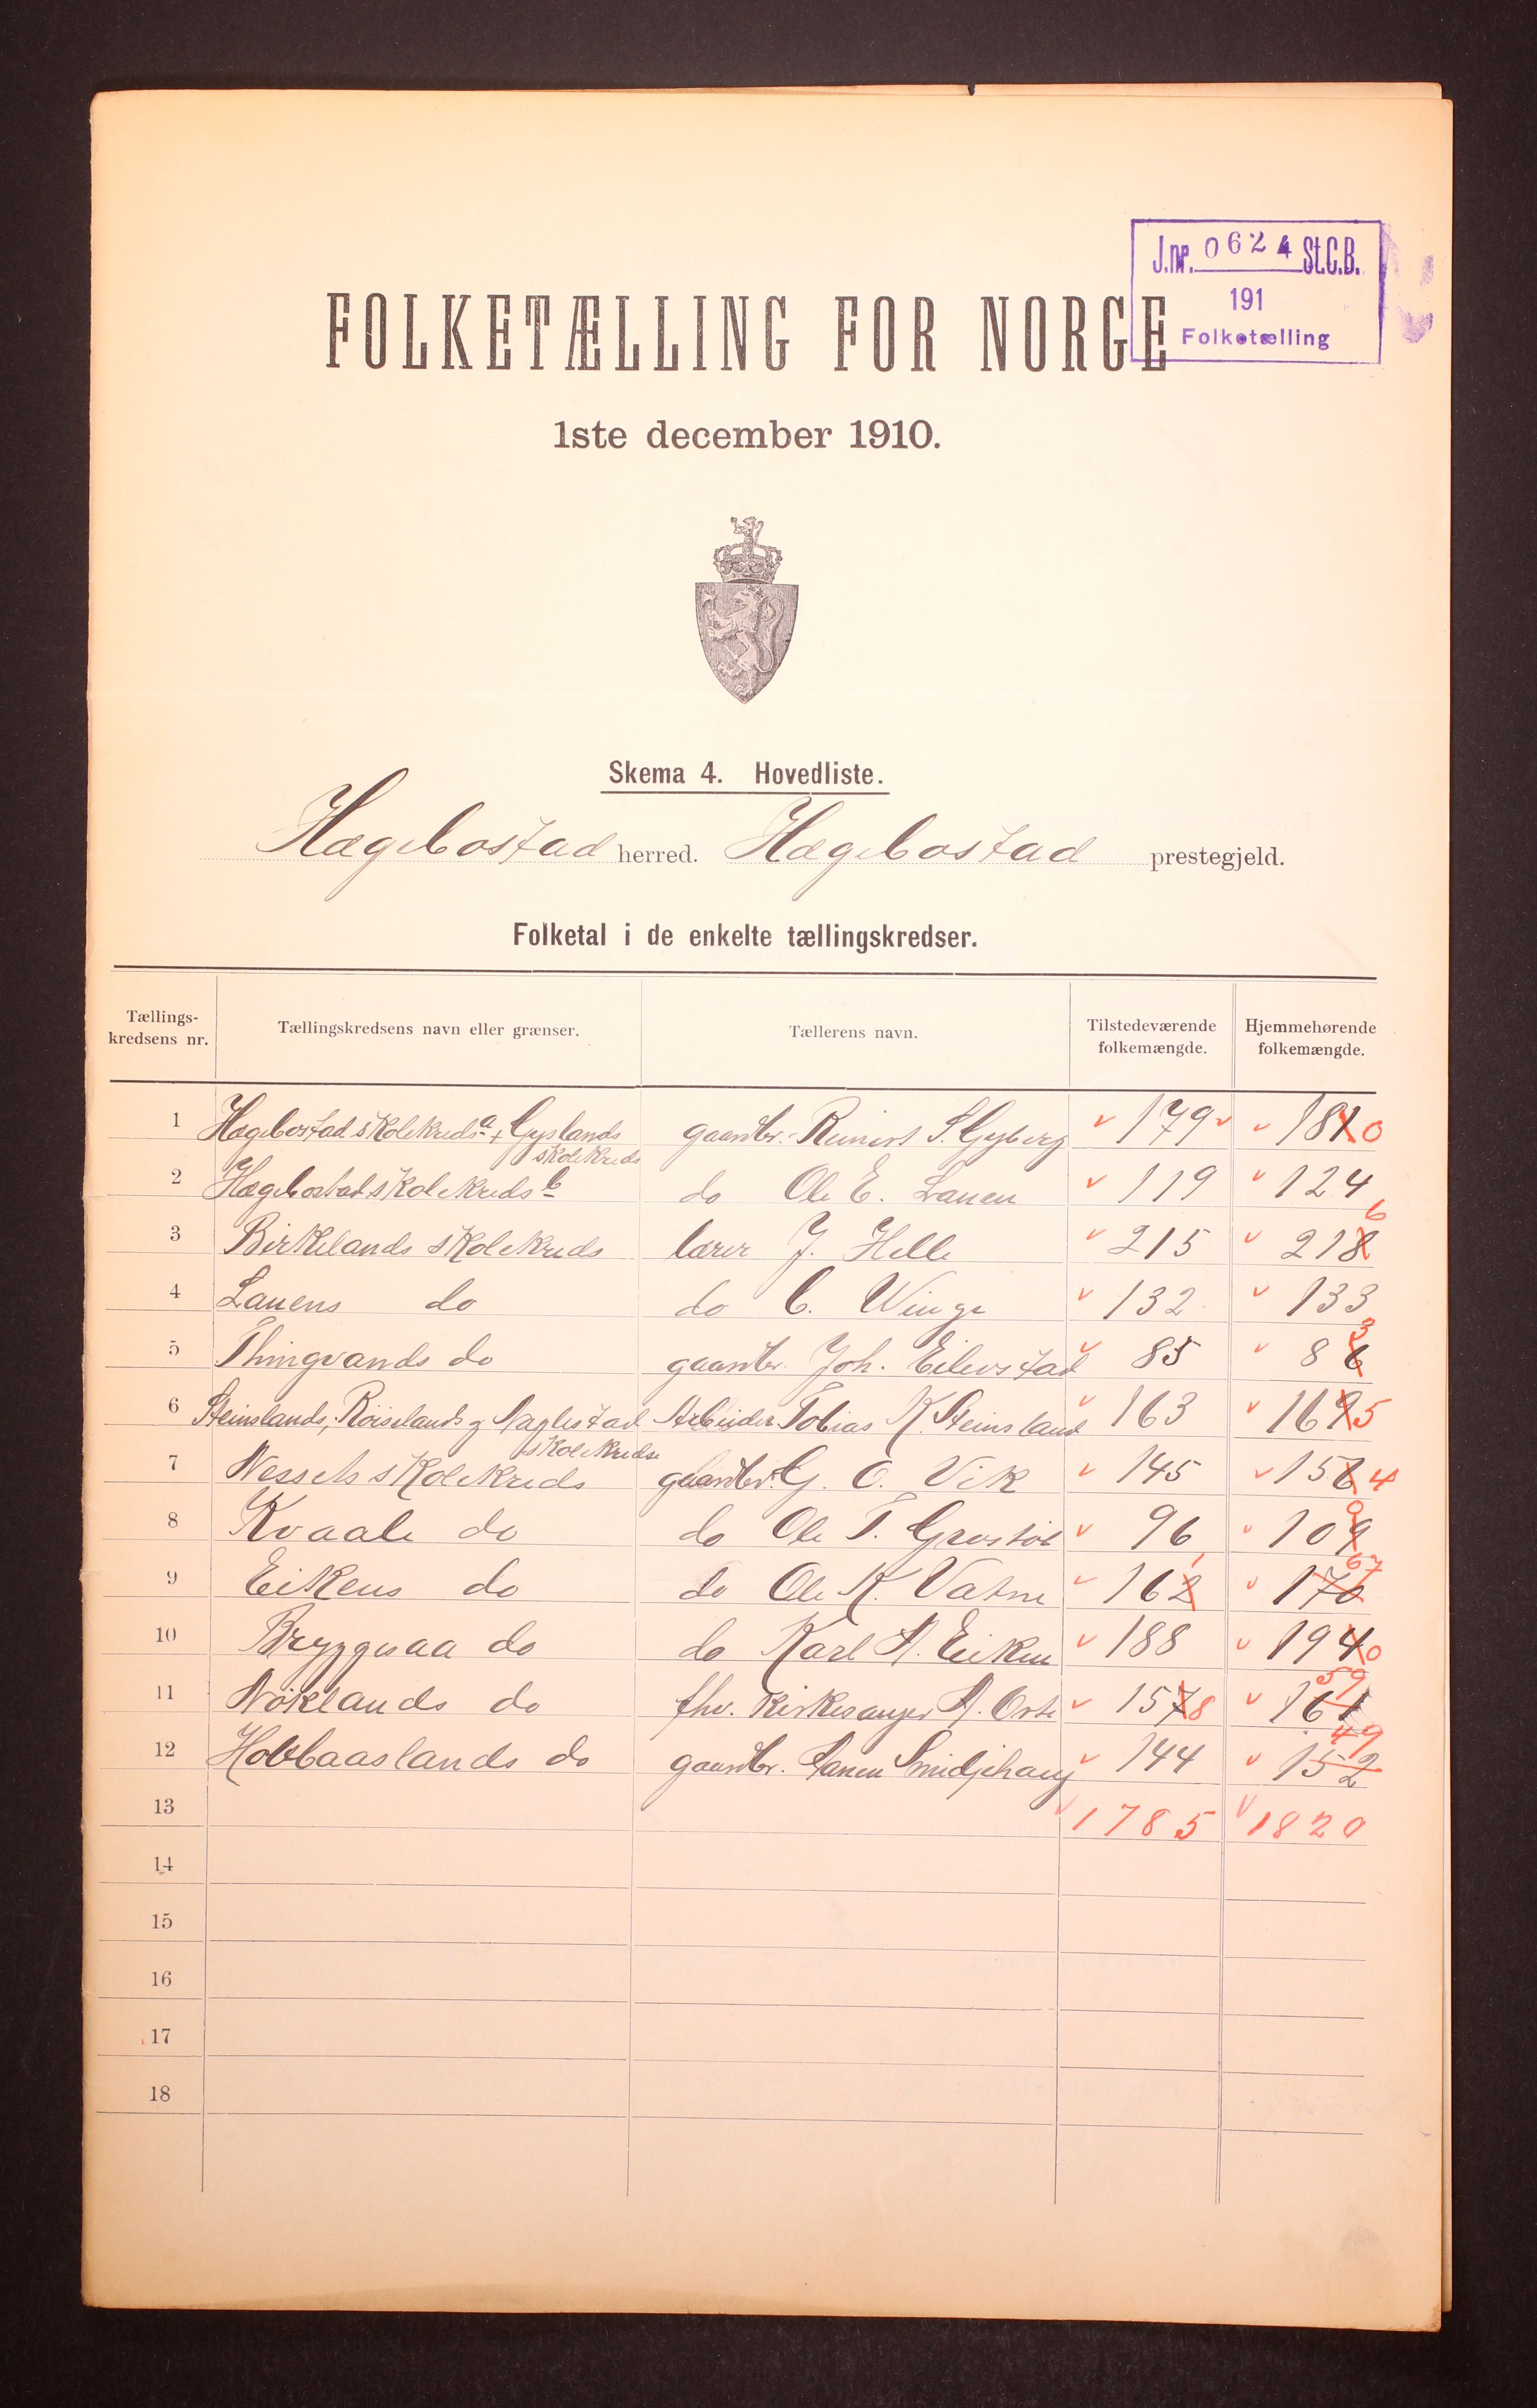 J.nr. 0624 St.C.B.
191
Folketælling
FOLKETÆLLING FOR NORGE
1ste december 1910.
Skema 4. Hovedliste.
Hægebostad herred. Hægebostad prestegjeld.
Folketal i de enkelte tællingskredser.
Tællings-kredsens nr. Tællingskredsens navn eller grænser. Tællerens navn. Tilstedeværende folkemængde. Hjemmehørende folkemængde.
1 Hægebostad skolekreds a + Gyslands skolekreds gaardbr. Reinert S. Gyberg 179 181 0
2 Hægebostad skolekreds b do Ole E. Lauen 119 124
3 Birkelands skolekreds lærer J. Helle 215 218 6
4 Lauens do do C. Winge 132 133
5 Thingvands do gaardbr. Joh. Eilevstad 85 86 3
6 Steinslands, Röiselands og Naglestad skolekredse Arbeider Tobias K. Steinsland 163 169 5
7 Nessets skolekreds gaardbr. G. O. Vik 145 156 4
8 Kvaale do do Ole T. 96 109 0
9 Eikens do do Ole K. Vatne 162 1 170 67
10 Bryggesaa do do Karl A. Eiken 188 194 0
11 Nöklands do fhv. kirkesanger A. 157 8 161 59
12 Hobbaaslands do gaardbr. Smidjehaug 144 152 49
13 1785 1820
14
15
16
17
18